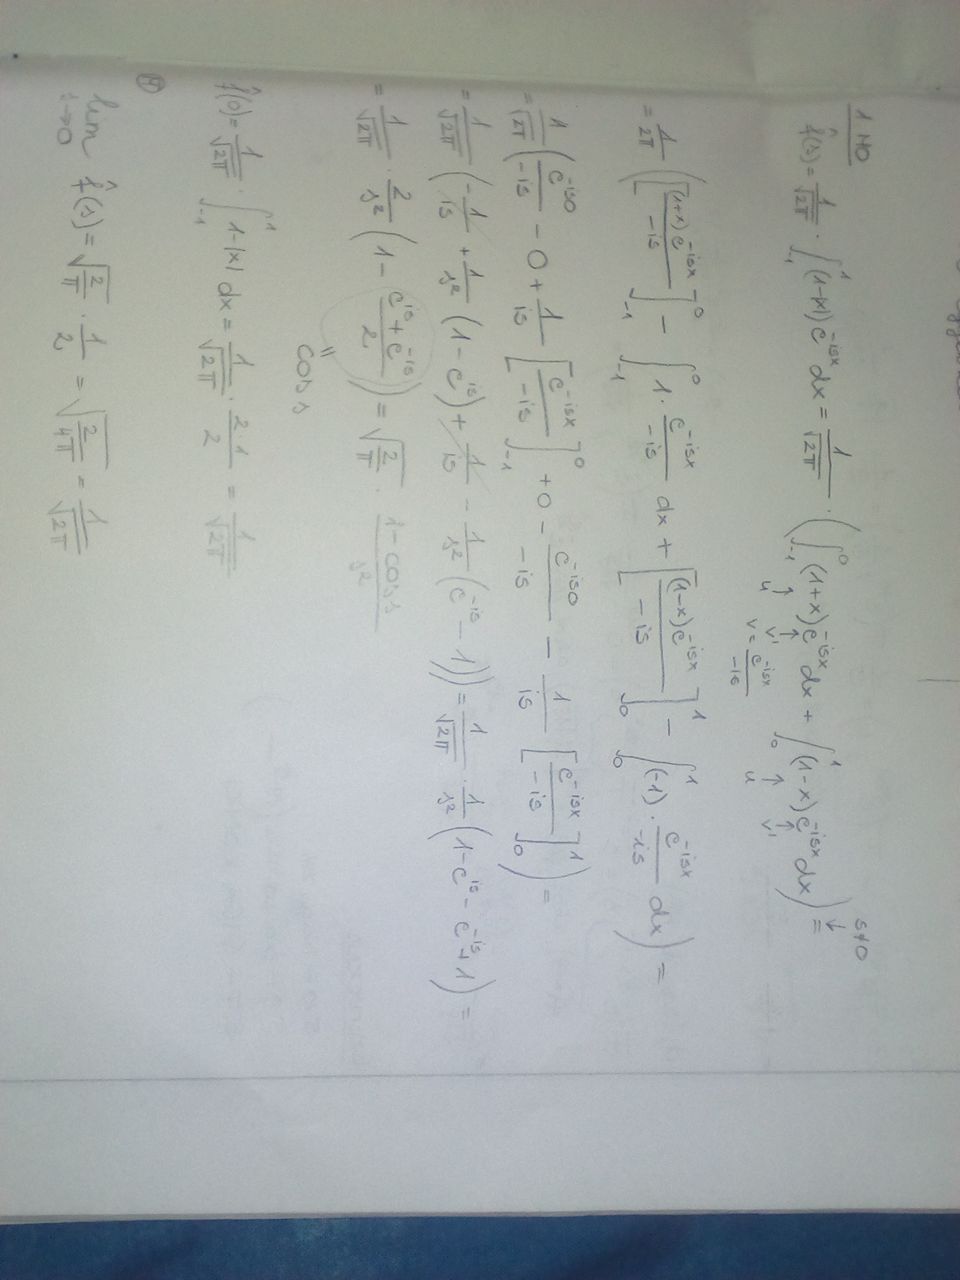 1 MO
s≠0
f̂(s) = 1/√2π · ∫_{-1}^{1} (1-|x|) e^{-isx} dx = 1/√2π · ( ∫_{-1}^{0} (1+x) e^{-isx} dx + ∫_{0}^{1} (1-x) e^{-isx} dx ) =
↑ u ↑ v' ↑ u ↑ v'
v = e^{-isx}/-is
= 1/2π ( [ (1+x) e^{-isx}/-is ]_{-1}^{0} - ∫_{-1}^{0} 1 · e^{-isx}/-is dx + [ (1-x) e^{-isx}/-is ]_{0}^{1} - ∫_{0}^{1} (-1) · e^{-isx}/-is dx ) =
= 1/√2π ( e^{-is0}/-is - 0 + 1/is [ e^{-isx}/-is ]_{-1}^{0} + 0 - e^{-is0}/-is - 1/is [ e^{-isx}/-is ]_{0}^{1} ) =
= 1/√2π ( -1/is + 1/s² (1 - e^{is}) + 1/is - 1/s² (e^{-is} - 1) ) = 1/√2π · 1/s² ( 1 - e^{is} - e^{-is} + 1 ) =
= 1/√2π · 2/s² ( 1 - (e^{is} + e^{-is})/2 ) = √(2/π) · (1 - cos s)/s²
"
cos s
f̂(0) = 1/√2π · ∫_{-1}^{1} 1-|x| dx = 1/√2π · 2·1/2 = 1/√2π
lim_{s→0} f̂(s) = √(2/π) · 1/2 = √(2/4π) = 1/√2π